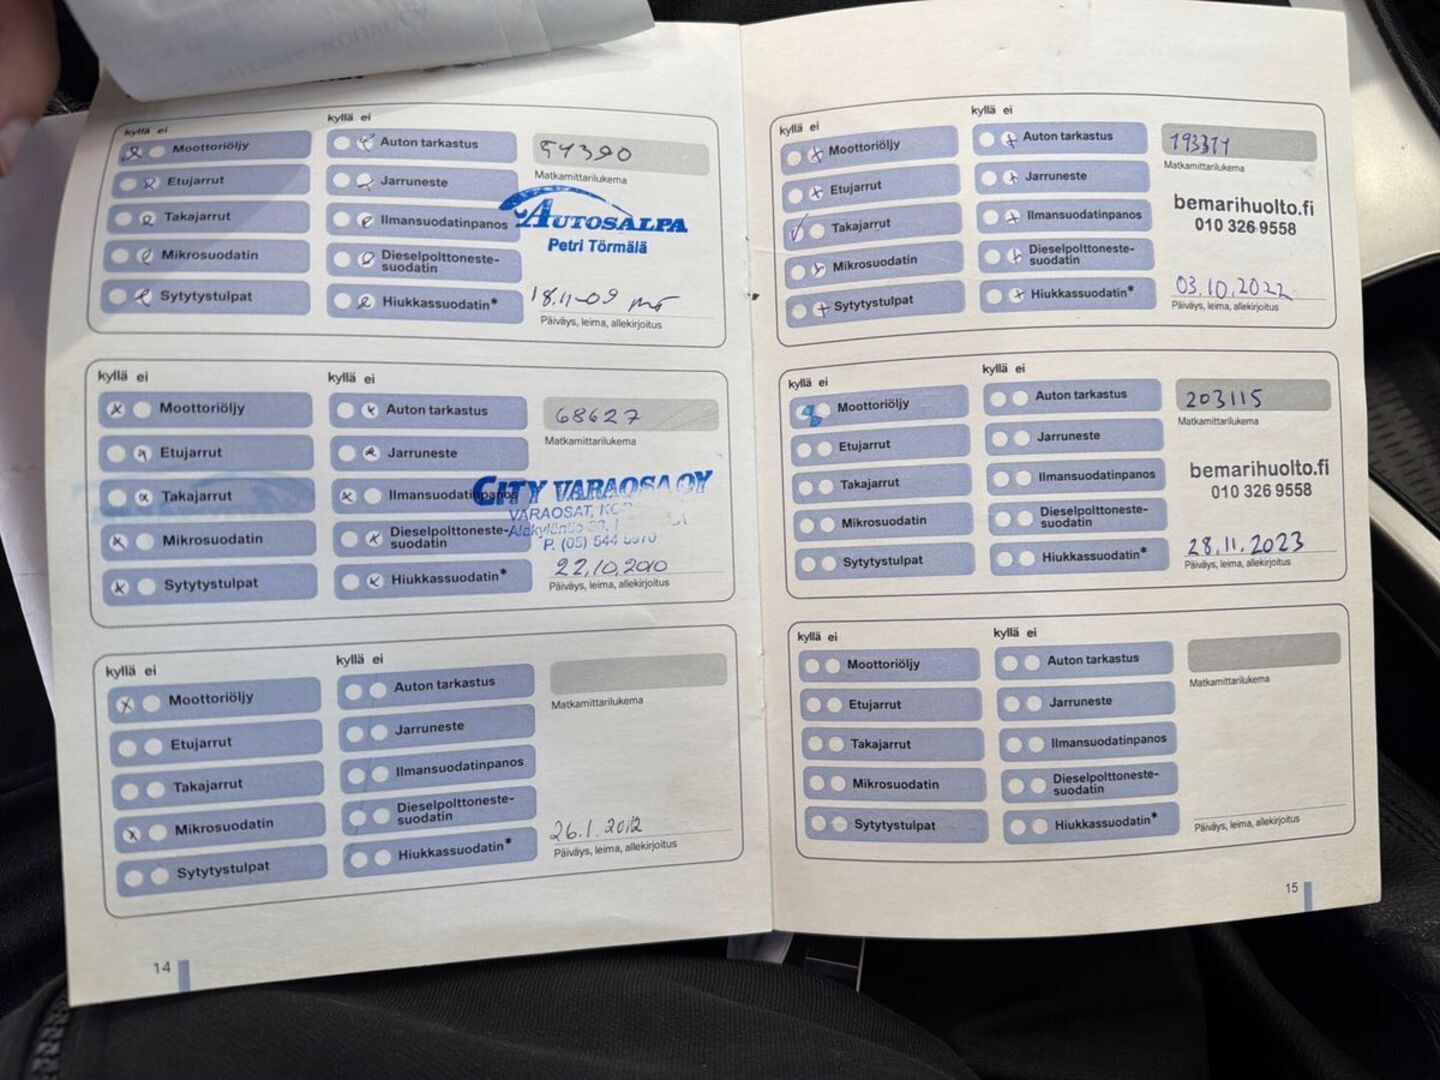 kyllä ei
kyllä ei
Moottoriöljy
Auton tarkastus
54390
Matkamittarilukema
Etujarrut
Jarruneste
Takajarrut
Ilmansuodatinpanos
AUTOSALPA
Petri Törmälä
Mikrosuodatin
Dieselpolttoneste-
suodatin
Sytytystulpat
Hiukkassuodatin*
18.11-09
Päiväys, leima, allekirjoitus
kyllä ei
kyllä ei
Moottoriöljy
Auton tarkastus
68627
Matkamittarilukema
Etujarrut
Jarruneste
Takajarrut
Ilmansuodatinpanos
CITY VARAOSA OY
VARAOSAT,
Mikrosuodatin
Dieselpolttoneste-
suodatin
P. (05) 544
Sytytystulpat
Hiukkassuodatin*
22.10.2010
Päiväys, leima, allekirjoitus
kyllä ei
kyllä ei
Moottoriöljy
Auton tarkastus
Matkamittarilukema
Etujarrut
Jarruneste
Takajarrut
Ilmansuodatinpanos
Mikrosuodatin
Dieselpolttoneste-
suodatin
Sytytystulpat
Hiukkassuodatin*
26.1.2012
Päiväys, leima, allekirjoitus
14
kyllä ei
kyllä ei
Moottoriöljy
Auton tarkastus
Matkamittarilukema
Etujarrut
Jarruneste
Takajarrut
Ilmansuodatinpanos
bemarihuolto.fi
010 326 9558
Mikrosuodatin
Dieselpolttoneste-
suodatin
Sytytystulpat
Hiukkassuodatin*
03.10.2022
Päiväys, leima, allekirjoitus
kyllä ei
kyllä ei
Moottoriöljy
Auton tarkastus
203115
Matkamittarilukema
Etujarrut
Jarruneste
Takajarrut
Ilmansuodatinpanos
bemarihuolto.fi
010 326 9558
Mikrosuodatin
Dieselpolttoneste-
suodatin
Sytytystulpat
Hiukkassuodatin*
28.11.2023
Päiväys, leima, allekirjoitus
kyllä ei
kyllä ei
Moottoriöljy
Auton tarkastus
Matkamittarilukema
Etujarrut
Jarruneste
Takajarrut
Ilmansuodatinpanos
Mikrosuodatin
Dieselpolttoneste-
suodatin
Sytytystulpat
Hiukkassuodatin*
Päiväys, leima, allekirjoitus
15